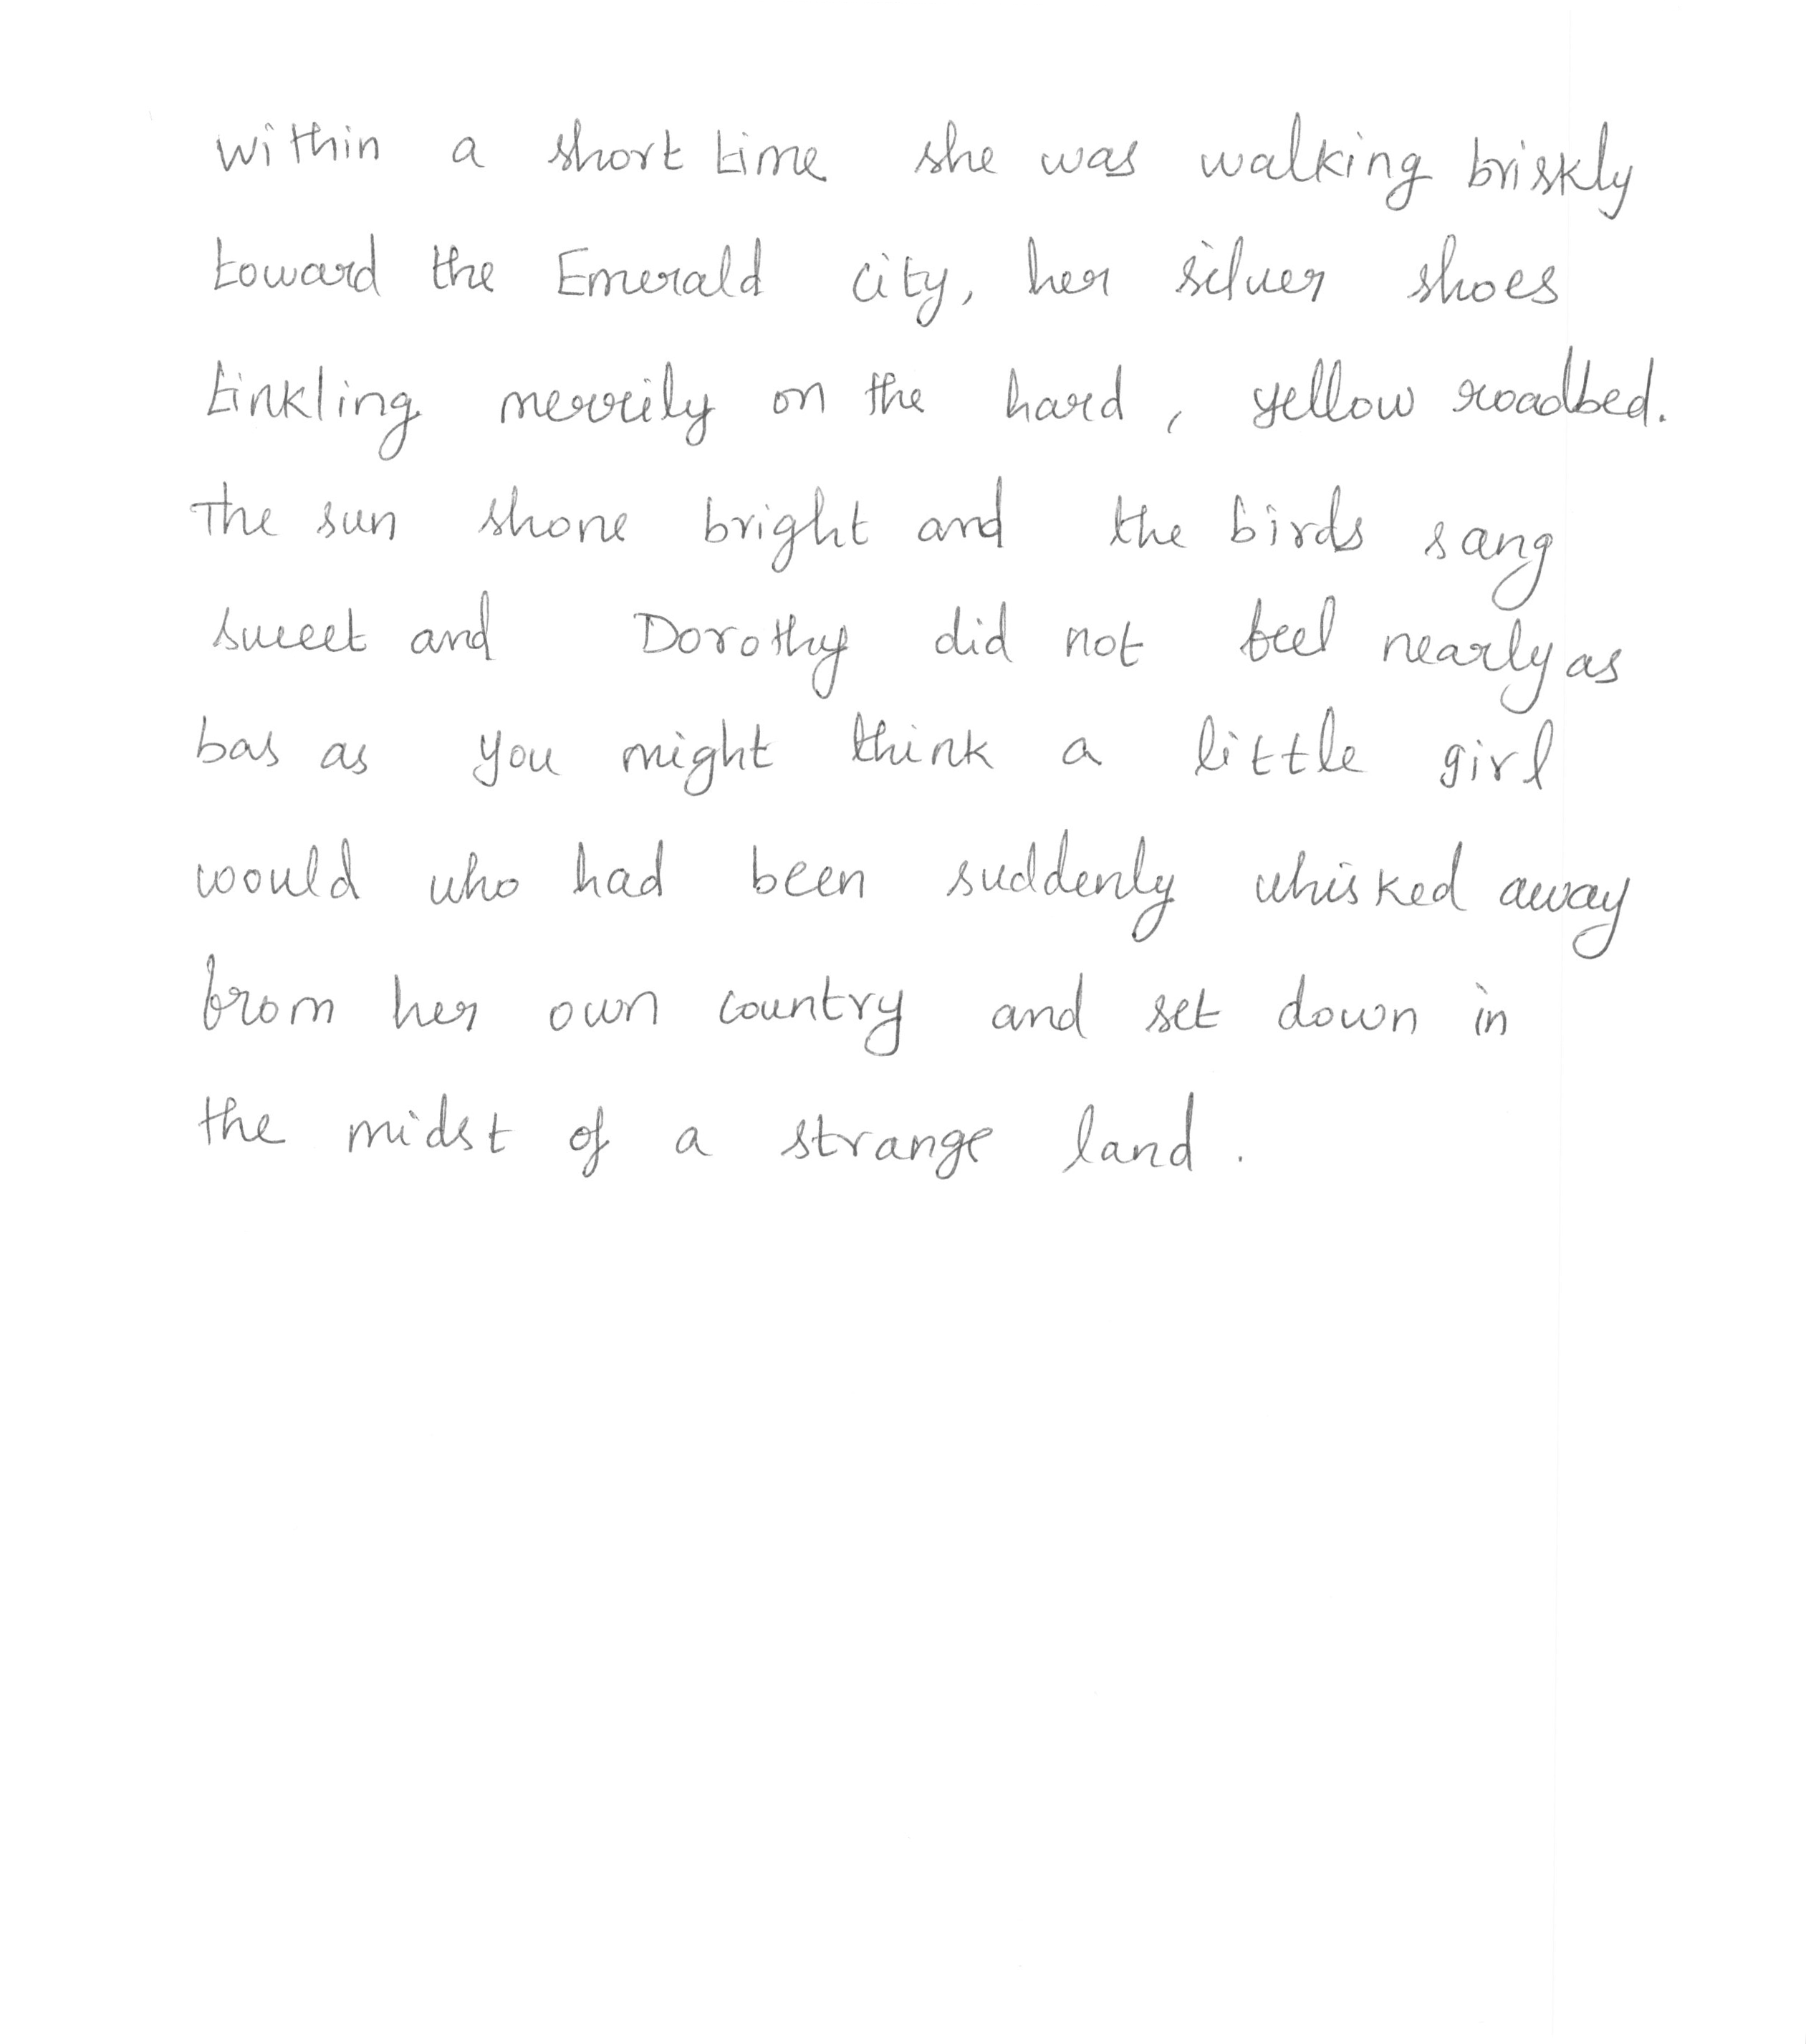 within a short time she was walking briskly
toward the Emerald city, her silver shoes
tinkling merrily on the hard, yellow roadbed.
The sun shone bright and the birds sang
sweet and Dorothy did not feel nearly as
bas as you might think a little girl
would who had been suddenly whisked away
from her own country and set down in
the midst of a strange land.